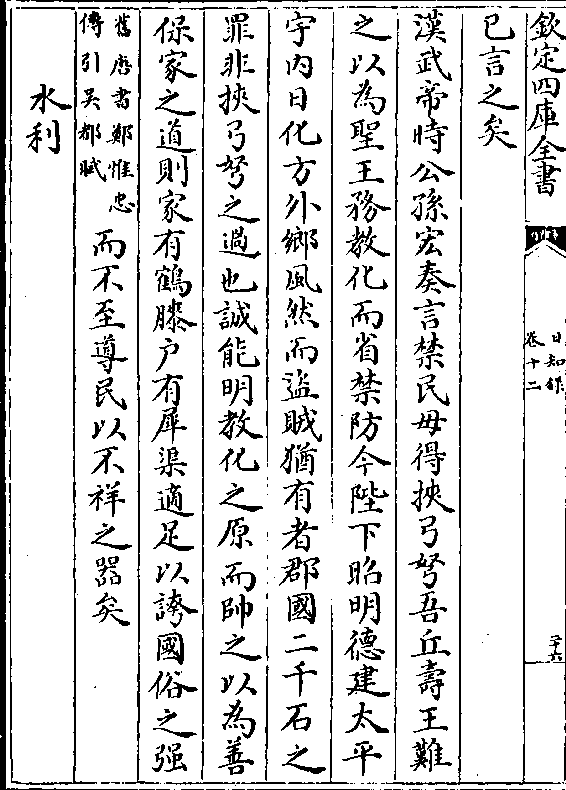 欽定四庫全書
日知錄
卷十二
二十六
已言之矣
漢武帝時公孫宏奏言禁民毋得挾弓弩吾丘壽王難
之以為聖王務教化而省禁防今陛下昭明德建太平
宇内日化方外鄉風然而盜賊猶有者郡國二千石之
罪非挾弓弩之過也誠能明教化之原而帥之以為善
保家之道則家有鶴膝户有犀渠適足以誇國俗之强
舊唐書鄭惟忠
傳引吳都賦
而不至導民以不祥之器矣
水利